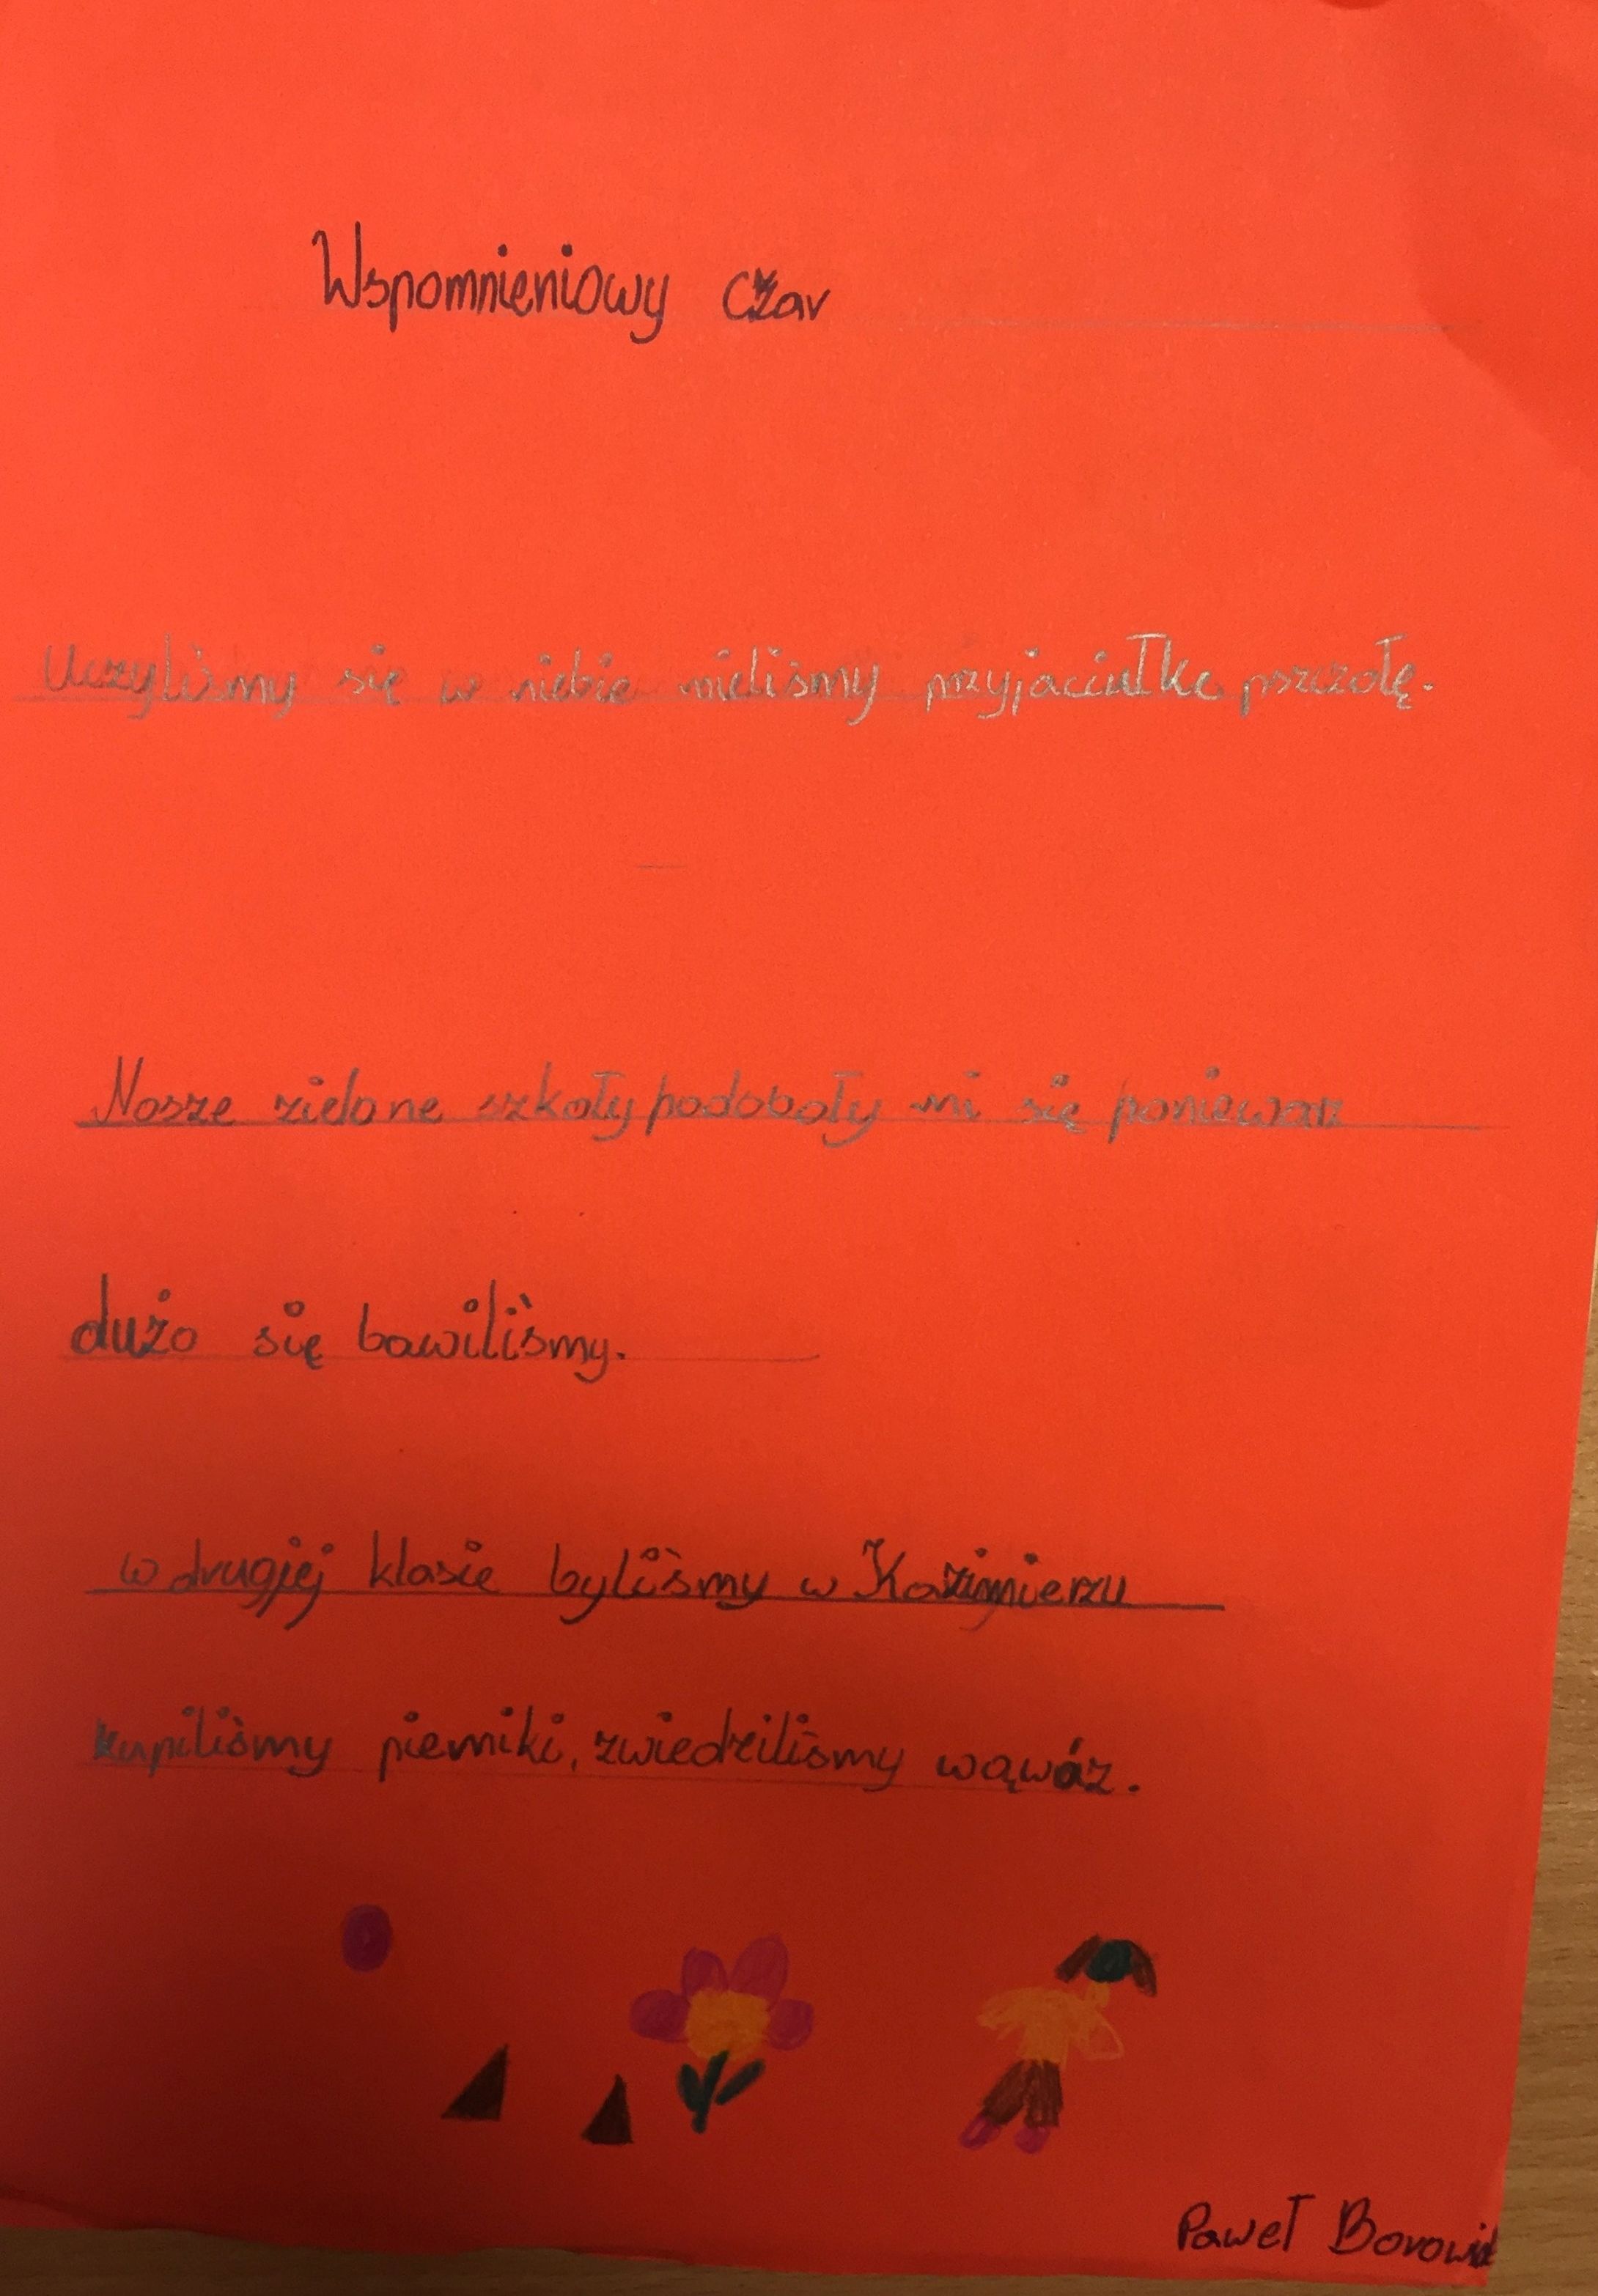 Wspomnieniowy czar
Uczyliśmy się w niebie mieliśmy przyjaciułke pszczołę.
Nasze zielone szkoły podobały mi się poniewarz
dużo się bawiliśmy.
w drugjej klasie byliśmy w Kazimierzu
kupiliśmy pierniki, zwiedziliśmy wąwóz.
Paweł